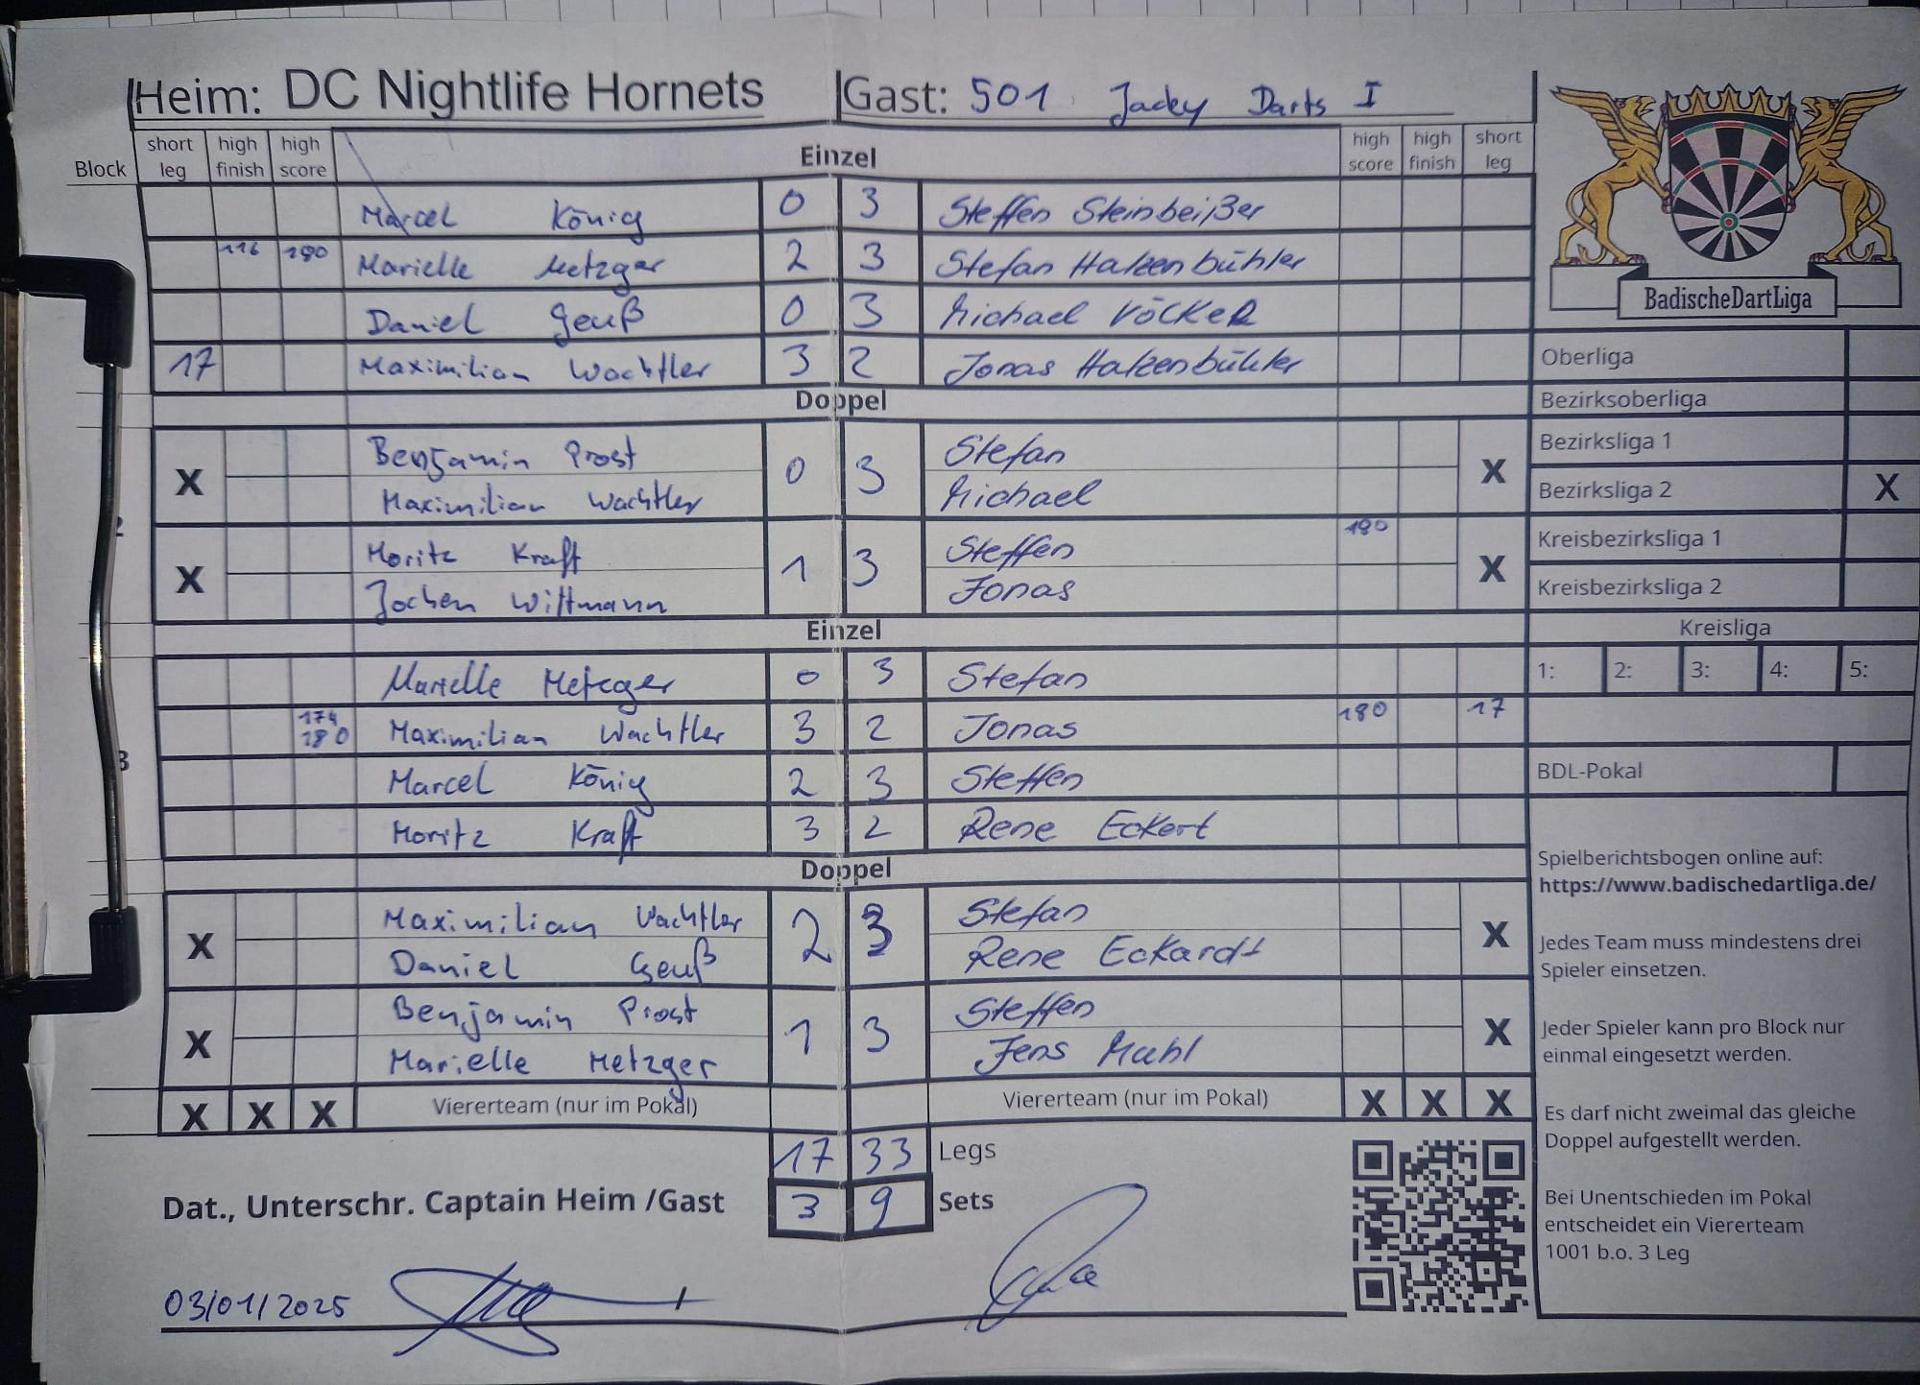 Heim: DC Nightlife Hornets Gast: 501 Jacky Darts I
Block short leg high finish high score Einzel high score high finish short leg
Marcel König 0 3 Steffen Steinbeißer
116 180 Marielle Metzger 2 3 Stefan Halzenbühler
Daniel Geuß 0 3 Michael VÖCKER
17 Maximilian Wachtler 3 2 Jonas Halzenbühler
Doppel
X Benjamin Prost 0 3 Stefan X
Maximilian Wachtler Michael
2
X Moritz Kraft 1 3 Steffen 180 X
Jochen Wittmann Jonas
Einzel
Marielle Metzger 0 3 Stefan
174
180 Maximilian Wachtler 3 2 Jonas 180 17
3
Marcel König 2 3 Steffen
Moritz Kraft 3 2 Rene Eckert
Doppel
X Maximilian Wachtler 2 3 Stefan X
Daniel Geuß Rene Eckardt
X Benjamin Prost 1 3 Steffen X
Marielle Metzger Jens Muhl
X X X Viererteam (nur im Pokal) Viererteam (nur im Pokal) X X X
17 33 Legs
Dat., Unterschr. Captain Heim /Gast 3 9 Sets
03/01/2025
BadischeDartLiga
Oberliga
Bezirksoberliga
Bezirksliga 1
Bezirksliga 2 X
Kreisbezirksliga 1
Kreisbezirksliga 2
Kreisliga
1: 2: 3: 4: 5:
BDL-Pokal
Spielberichtsbogen online auf:
https://www.badischedartliga.de/
Jedes Team muss mindestens drei
Spieler einsetzen.
Jeder Spieler kann pro Block nur
einmal eingesetzt werden.
Es darf nicht zweimal das gleiche
Doppel aufgestellt werden.
Bei Unentschieden im Pokal
entscheidet ein Viererteam
1001 b.o. 3 Leg